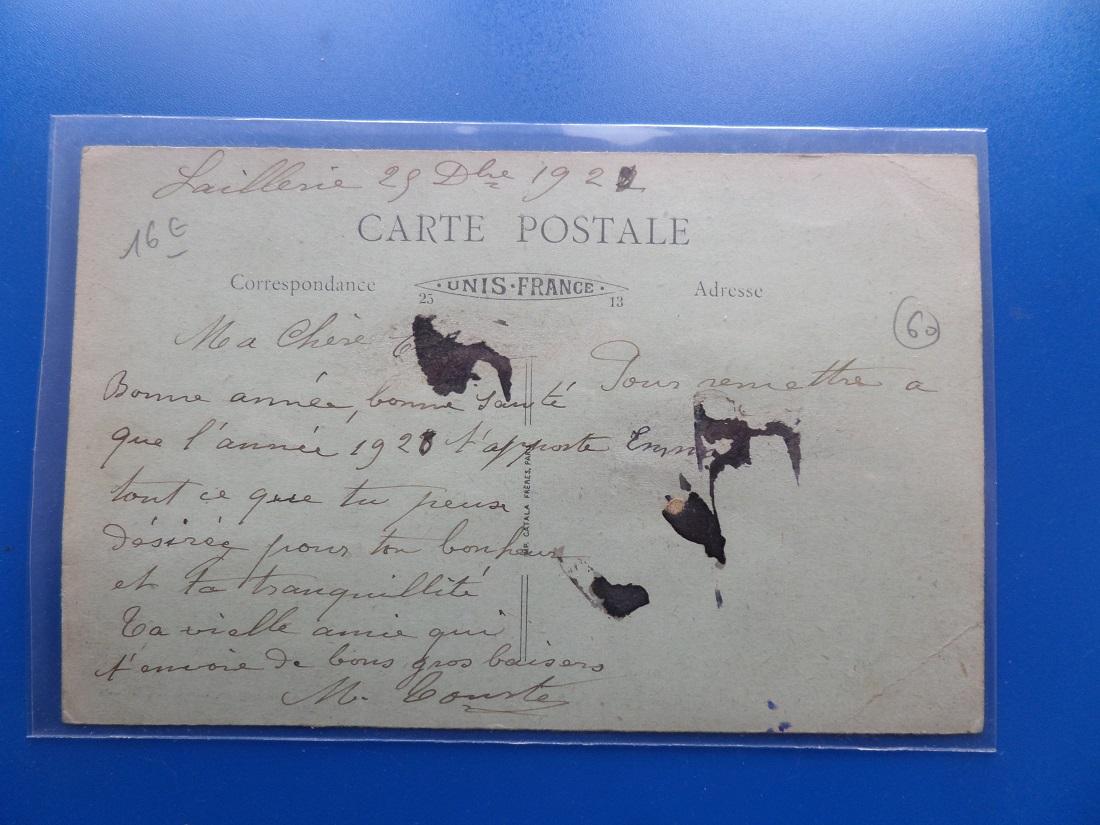 Laillerie 29 Dbre 192
16€
CARTE POSTALE
Correspondance
UNIS-FRANCE
25 13
Adresse
60
Ma Chère
Bonne année, bonne santé
que l'année 1928 t'apporte
tout ce que tu peux
désirée pour ton bonheur
et ta tranquillité
Ta vielle amie qui
t'envoie de bons gros baisers
M.
IMP. CATALA FRÈRES, PARIS
Pour remettre a